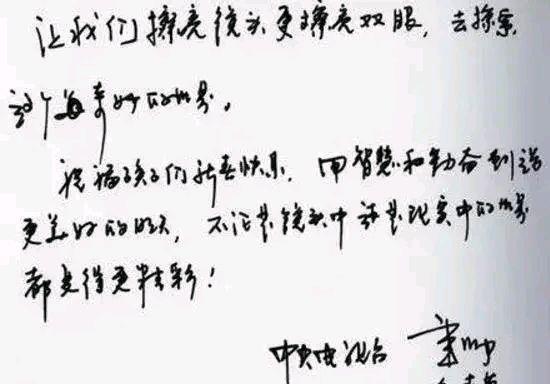 让我们擦亮镜头更擦亮双眼，去探索
这个奇妙的世界。
祝福孩子们新春快乐，用智慧和勤奋创造
更美好的明天，不论是镜头中还是现实中的世界
都变得更精彩！
中央电视台